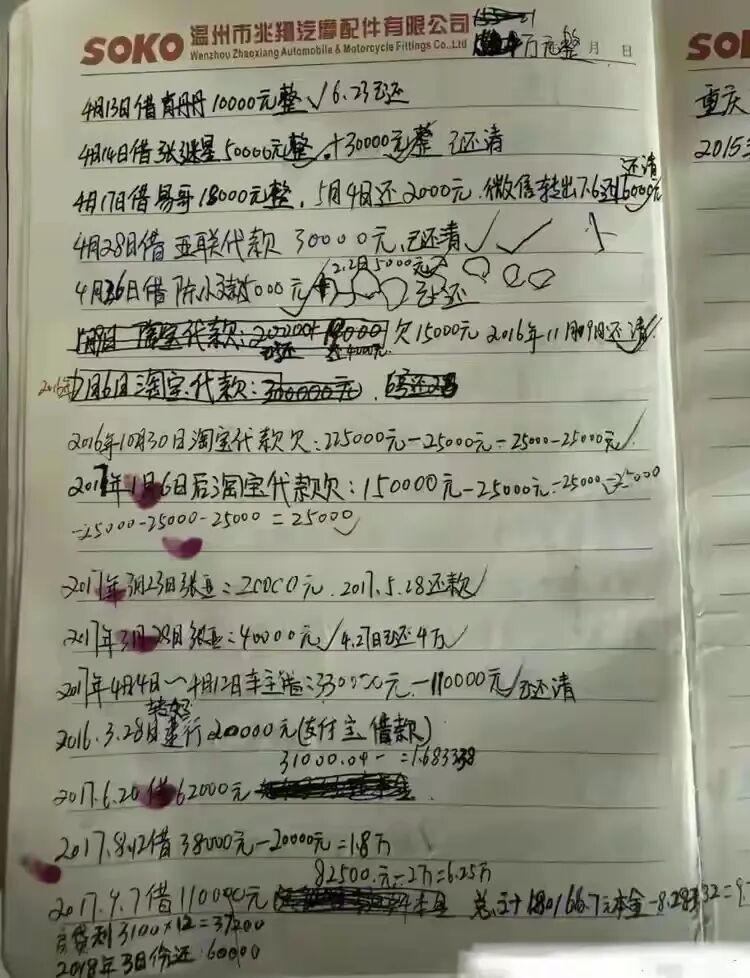 SOKO 温州市兆翔汽摩配件有限公司
Wenzhou Zhaoxiang Automobile & Motorcycle Fittings Co.,Ltd
万元整 月 日
SO
重庆
2015
4月13日借肖丹丹10000元整√6.23已还
4月14日借张继星50000元整√+30000元整 已还清
还清
4月17日借易哥18000元整，5月4日还2000元.微信转出7.6还16000元
4月28日借亚联代款30000元,已还清√√
2.2日5000元
4月26日借陈小 5000元 已还
淘宝代款: 欠15000元 2016年11月09日还清√
已还 4000元
2016年7月6日淘宝代款:300000元.
2016年10月30日淘宝代款欠:225000元-25000元-25000-25000元√
2017年1月6日后淘宝代款欠:150000元-25000元-25000-25000
-25000-25000-25000=25000√
2017年3月23日张亚:20000元.2017.5.28还款√
2017年3月28日张亚:40000元√4.27日已还4万√
2017年4月4日～4月12日车主 :330000元-110000元√已还清
2016.3.28日建行20000元(支付宝借款)
31000.04- =1.683338
2017.6.20借62000元
2017.8.12借38000元-20000元=1.8万
82500.元-2万=6.25万
2017.9.7借110000元 总计180166.7元本金-8.28332=9.
房贷利3100×12=37200
2018年3月份还:60000